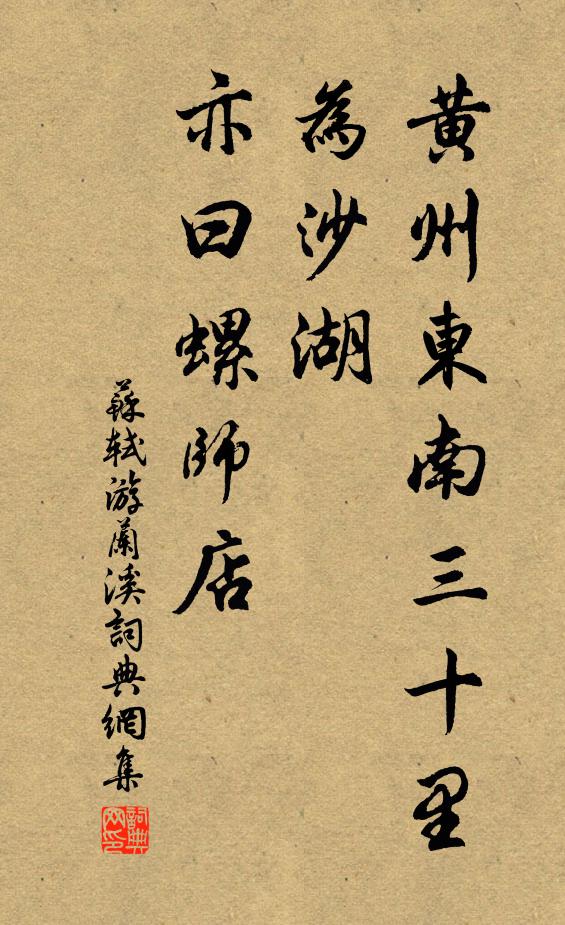 黄州東南三十里
為沙湖
亦曰螺師店
蘇軾游蘭溪詞典網集
詞典网印